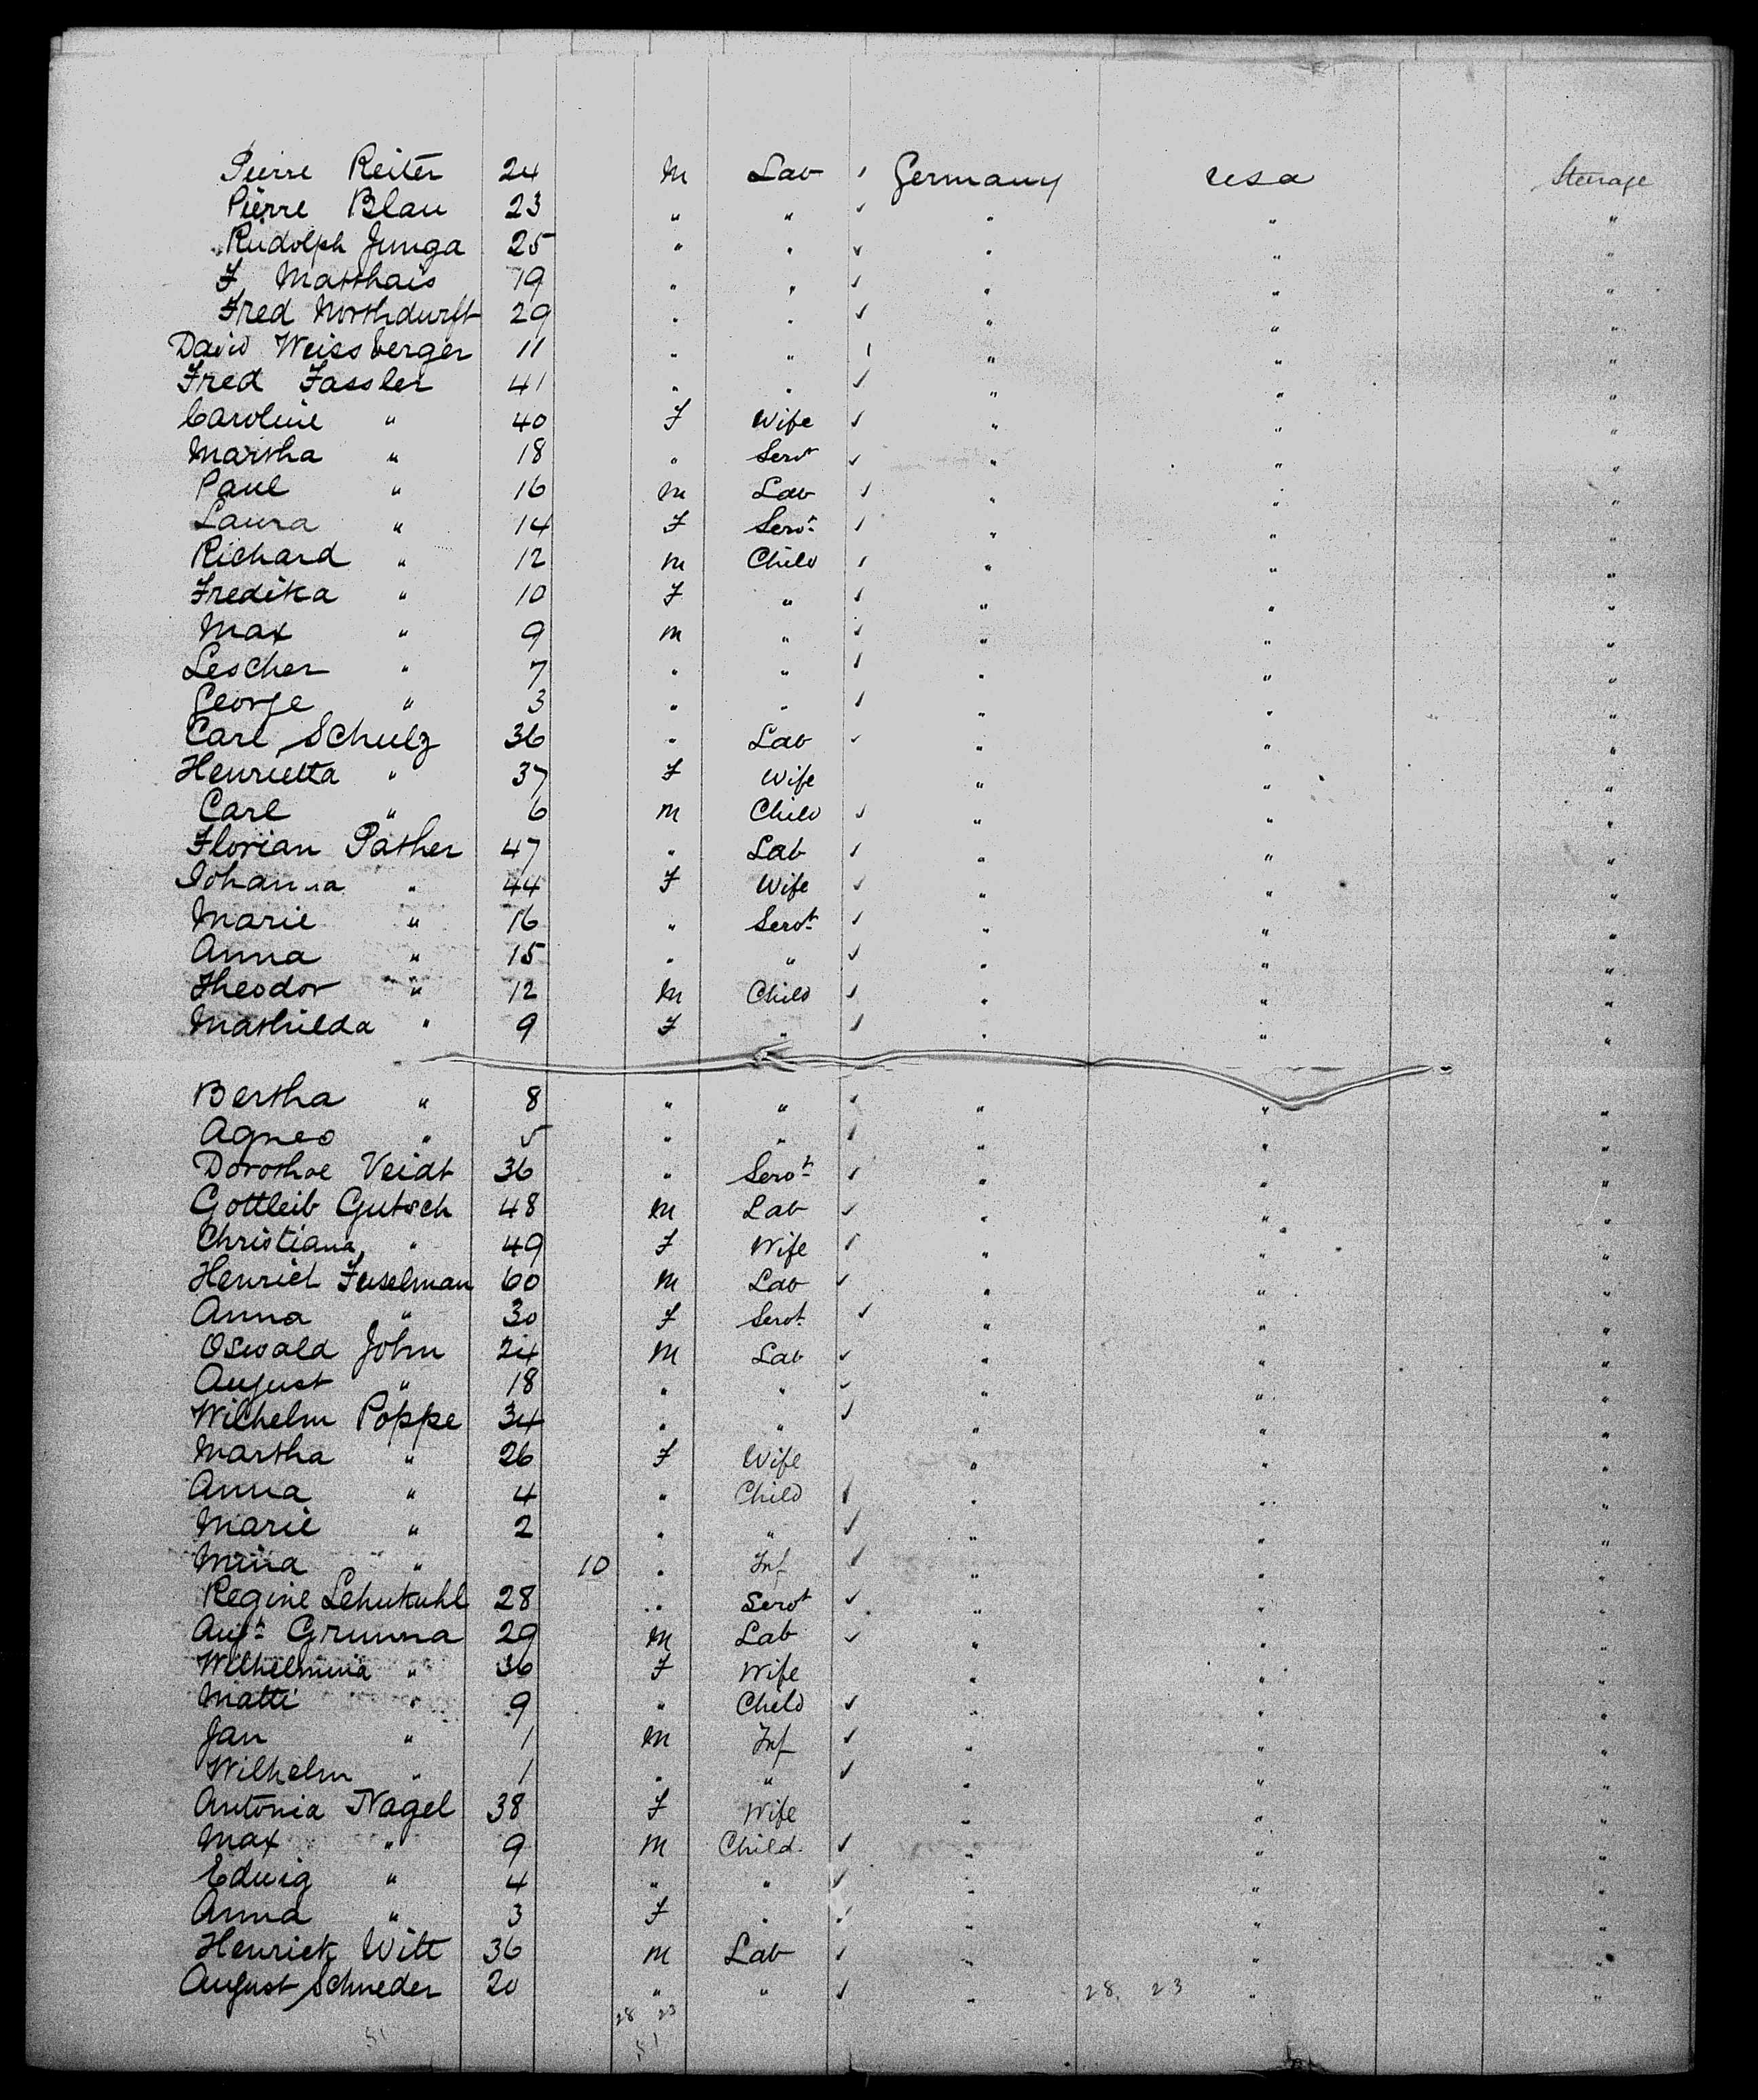 Pierre Reiter 24 M Lab ✓ Germany USA Steerage
Pierre Blau 23 " " ✓ " " "
Rudolph Junga 25 " " ✓ " " "
F Matthais 19 " " ✓ " " "
Fred Nothdurft 29 " " ✓ " " "
David Weissberger 11 " " ✓ " " "
Fred Fassler 41 " " ✓ " " "
Caroline " 40 F Wife ✓ " " "
Martha " 18 " Servt ✓ " " "
Paul " 16 M Lab ✓ " " "
Laura " 14 F Servt ✓ " " "
Richard " 12 M Child ✓ " " "
Fredika " 10 F " ✓ " " "
Max " 9 M " ✓ " " "
Lescher " 7 " " ✓ " " "
George " 3 " " ✓ " " "
Carl Schulz 36 " Lab ✓ " " "
Henrietta " 37 F Wife " " "
Carl " 6 M Child ✓ " " "
Florian Pather 47 " Lab ✓ " " "
Johanna " 44 F Wife ✓ " " "
Marie " 16 " Servt ✓ " " "
Anna " 15 " " ✓ " " "
Theodor " 12 M Child ✓ " " "
Mathilda " 9 F " ✓ " " "
Bertha " 8 " " ✓ " " "
Agnes " 5 " " ✓ " " "
Dorothae Veidt 36 " Servt ✓ " " "
Gottleib Gutsch 48 M Lab ✓ " " "
Christiana " 49 F Wife ✓ " " "
Henrich Fuselman 60 M Lab ✓ " " "
Anna " 30 F Servt ✓ " " "
Oswald John 24 M Lab ✓ " " "
August " 18 " " ✓ " " "
Wilhelm Poppe 34 " " ✓ " " "
Martha " 26 F Wife " " "
Anna " 4 " Child ✓ " " "
Marie " 2 " " ✓ " " "
Mina " 10 " Inf ✓ " " "
Regine Lehukuhl 28 " Servt ✓ " " "
Augt Grunna 29 M Lab ✓ " " "
Wilhelmina " 36 F Wife " " "
Matti " 9 " Child ✓ " " "
Jan " 1 M Inf ✓ " " "
Wilhelm " 1 " " ✓ " " "
Antonia Nagel 38 F Wife " " "
Max " 9 M Child ✓ " " "
Edwig " 4 " " ✓ " " "
Anna " 3 F " ✓ " " "
Henrick Witt 36 M Lab ✓ " " "
August Schneder 20 " " ✓ " 28 23 " "
28 23
51 51